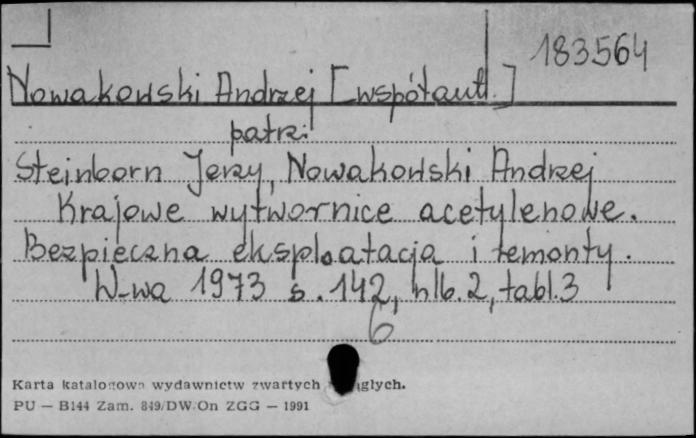 183564
Nowakowski Andrzej [współaut.]
patrz:
Steinborn Jerzy, Nowakowski Andrzej
Krajowe wytwornice acetylenowe.
Bezpieczna eksploatacja i remonty.
W-wa 1973 s. 142, nlb. 2, tabl. 3
6
Karta katalogowa wydawnictw zwartych
PU — B144 Zam. 849/DW/On ZGG — 1991